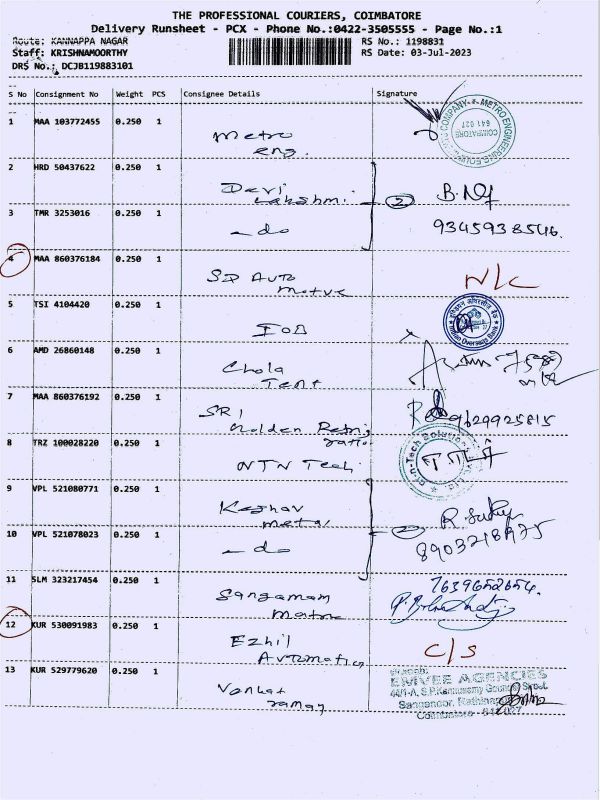 THE PROFESSIONAL COURIERS, COIMBATORE
Delivery Runsheet - PCX - Phone No.:0422-3505555 - Page No.:1
Route: KANNAPPA NAGAR
RS No.: 1198831
Staff: KRISHNAMOORTHY
RS Date: 03-Jul-2023
DRS No.: DCJB119883101
S No Consignment No Weight PCS Consignee Details Signature
1 MAA 103772455 0.250 1 Metro
eng.
METRO ENGINEERING
COIMBATORE
641 027
2 HRD 50437622 0.250 1 Devi
Lakshmi
2
3 TMR 3253016 0.250 1 - do
9345938546.
4 MAA 860376184 0.250 1 SD Auto
motive
N/C
5 TSI 4104420 0.250 1 IOB
Indian Overseas Bank
6 AMD 26860148 0.250 1 Chola
Tent
7 MAA 860376192 0.250 1 SRI
Golden
9629925815
8 TRZ 100028220 0.250 1 NTN Tech
n-Tech Solution
9 VPL 521080771 0.250 1 Keshav
metal
10 VPL 521078023 0.250 1 - do
8903218975
11 SLM 323217454 0.250 1 Sangamam
7639652654.
12 KUR 530091983 0.250 1 Ezhil
Automatics
C/S
13 KUR 529779620 0.250 1 Venkat
ramay
EMVEE AGENCIES
44/1-A, S.P.Kannusamy Gounder Street,
Sanganoor, Rathinapuri
Coimbatore - 641 027